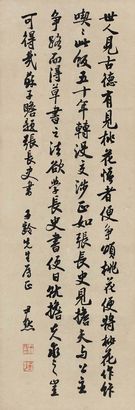 世人見古德有見桃花悟者便爭頌桃花便將桃花作飯
喫〻此飯五十年轉沒交涉正如張長史見擔夫與公主
爭路而得草書之法欲學張長史書便日就擔夫求之豈
可得哉蘇子瞻題張長史書 子齡先生屬正 尹默